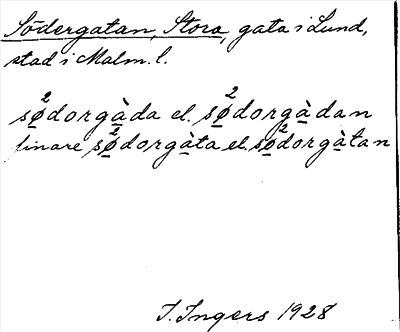 Södergatan, Stora, gata i Lund,
stad i Malm. l.
sø̱²dorgà̱da el. sø̱²dorgà̱dan
finare sø̱²dorgà̱ta el. sø̱²dorgà̱tan
I. Ingers 1928